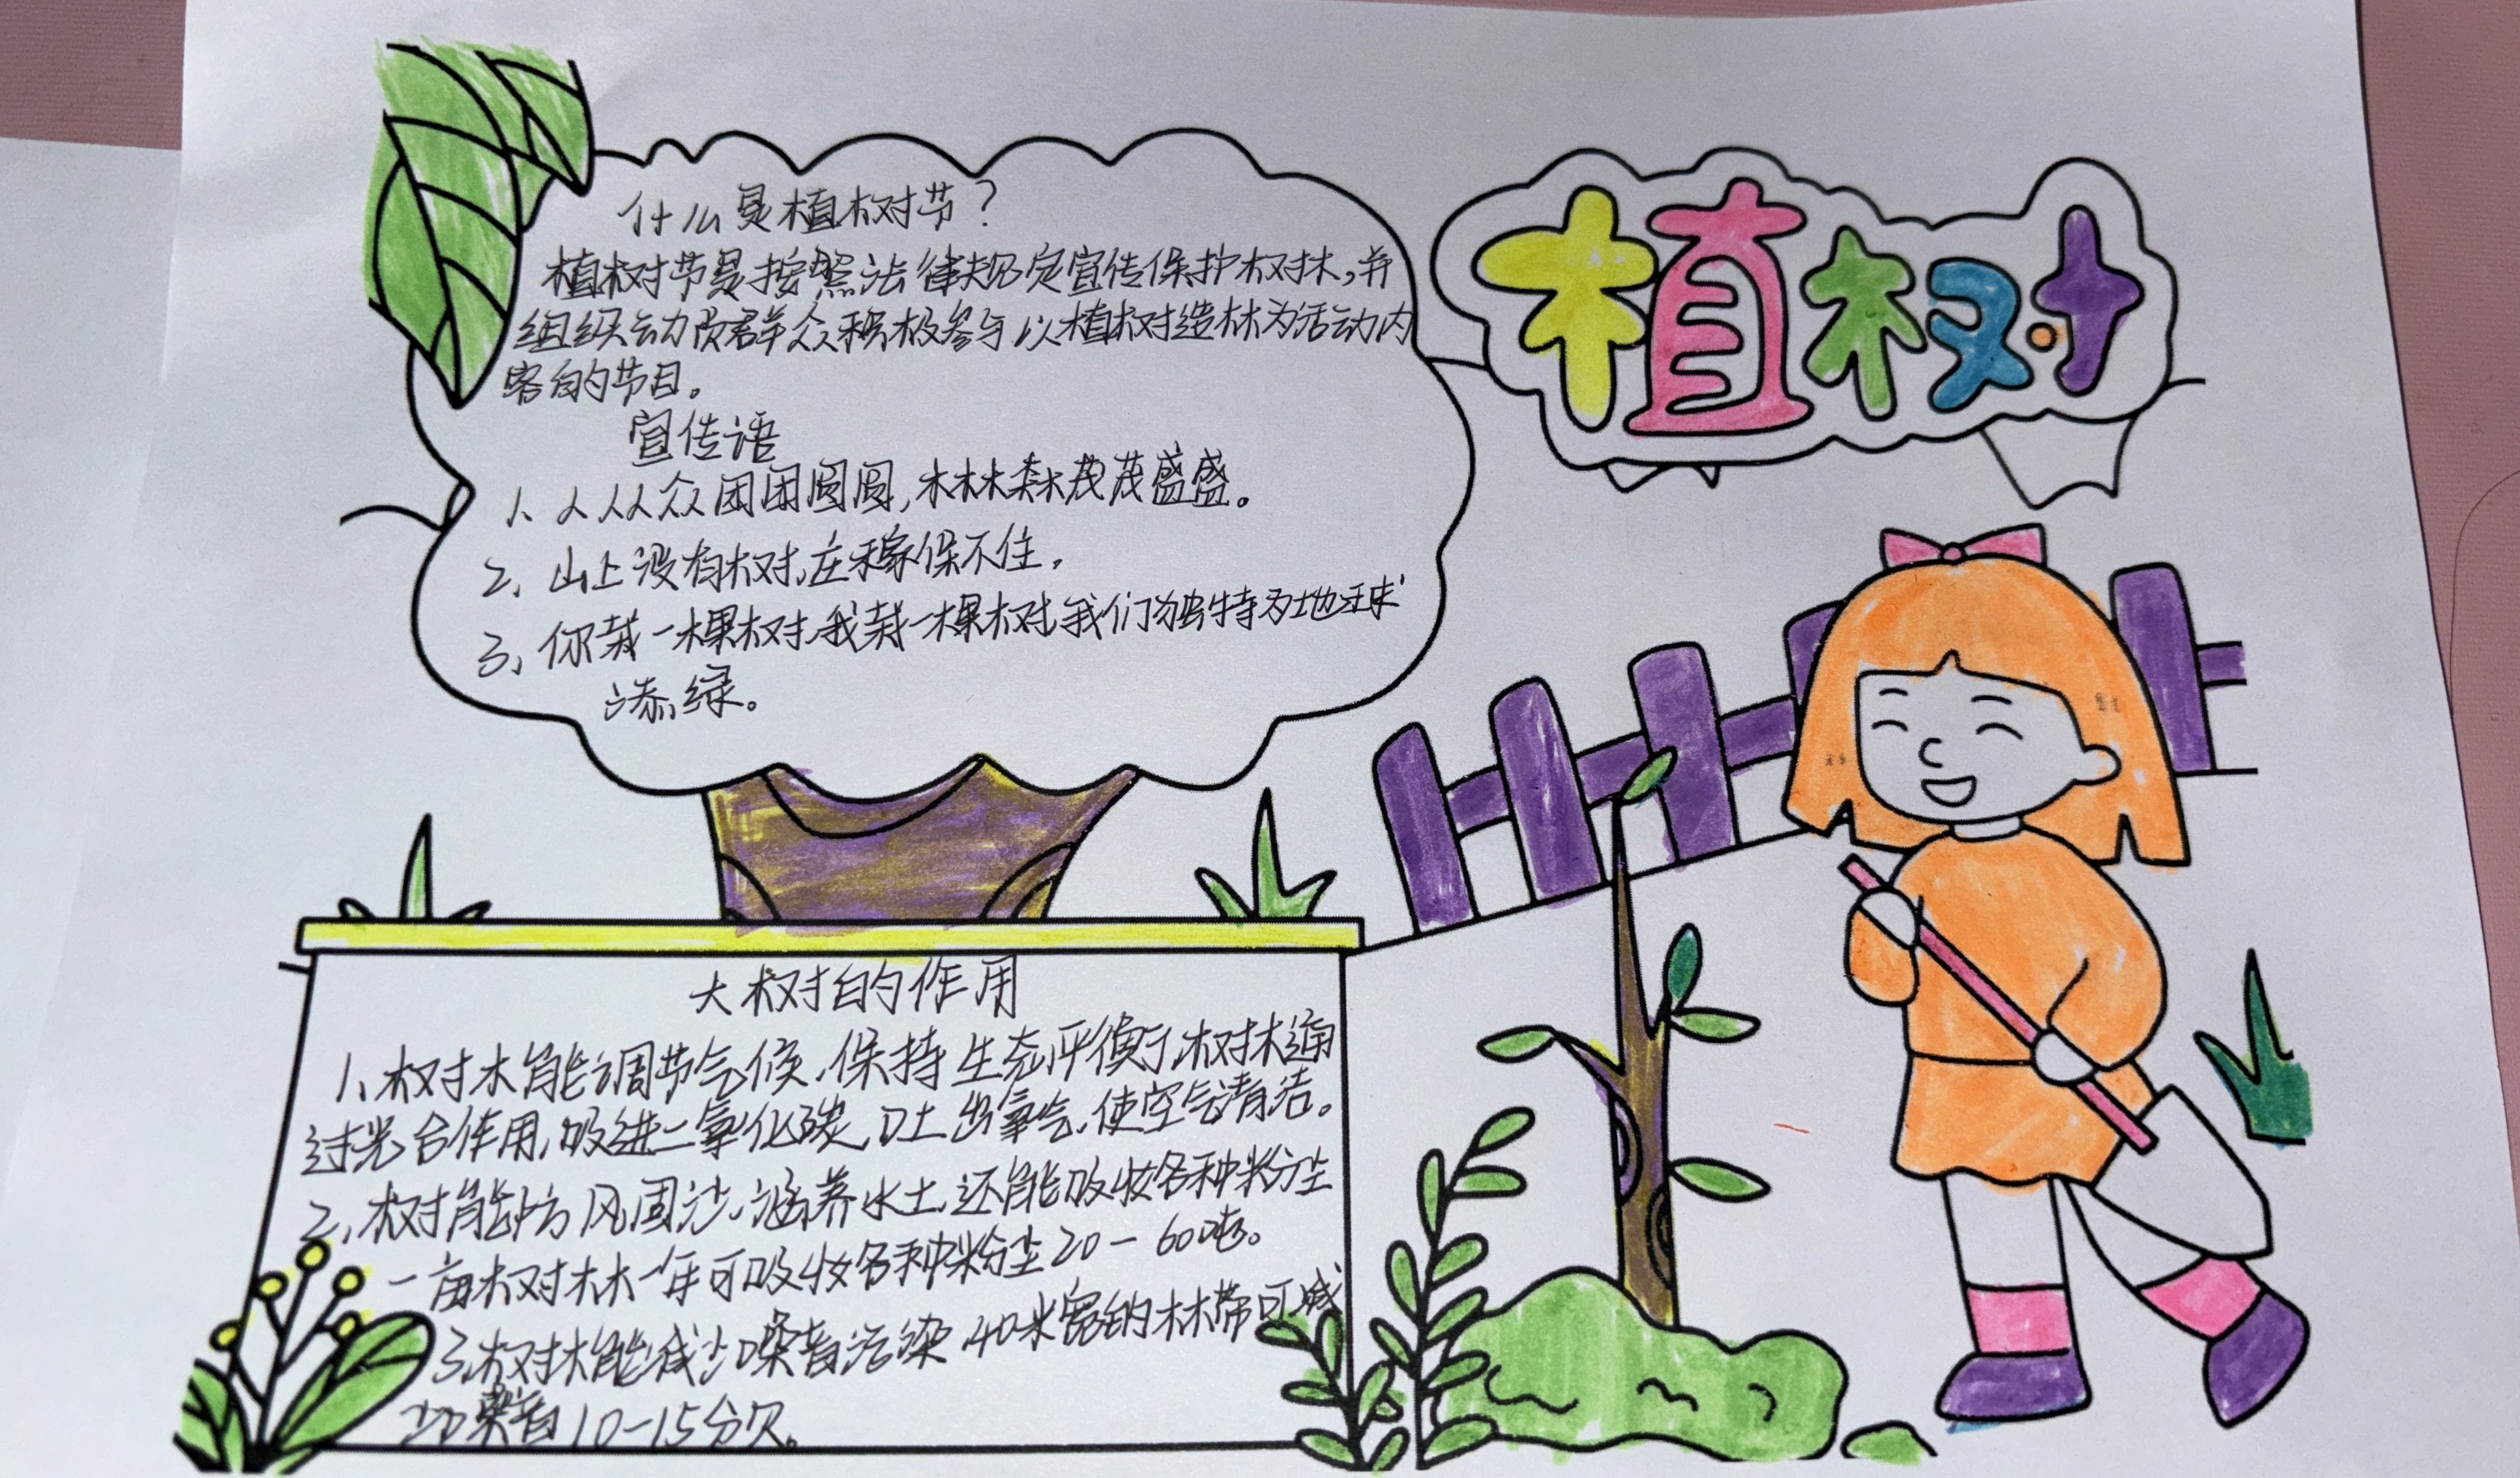 什么是植树节?
植树节是按照法律规定宣传保护树木,并
组织动员群众积极参与以植树造林为活动内
容的节日。
宣传语
1、人从众团团圆圆,木林森茂茂盛盛。
2、山上没有树,庄稼保不住。
3、你栽一棵树,我栽一棵树,我们独特为地球
添绿。
植树
大树的作用
1、树木能调节气候,保持生态平衡,树木通
过光合作用,吸进二氧化碳,吐出氧气,使空气清洁。
2、树能防风固沙,涵养水土,还能吸收各种粉尘
一亩树林一年可吸收各种粉尘20-60吨。
3、树林能减少噪音污染,40米宽的林带可减
少噪音10-15分贝。